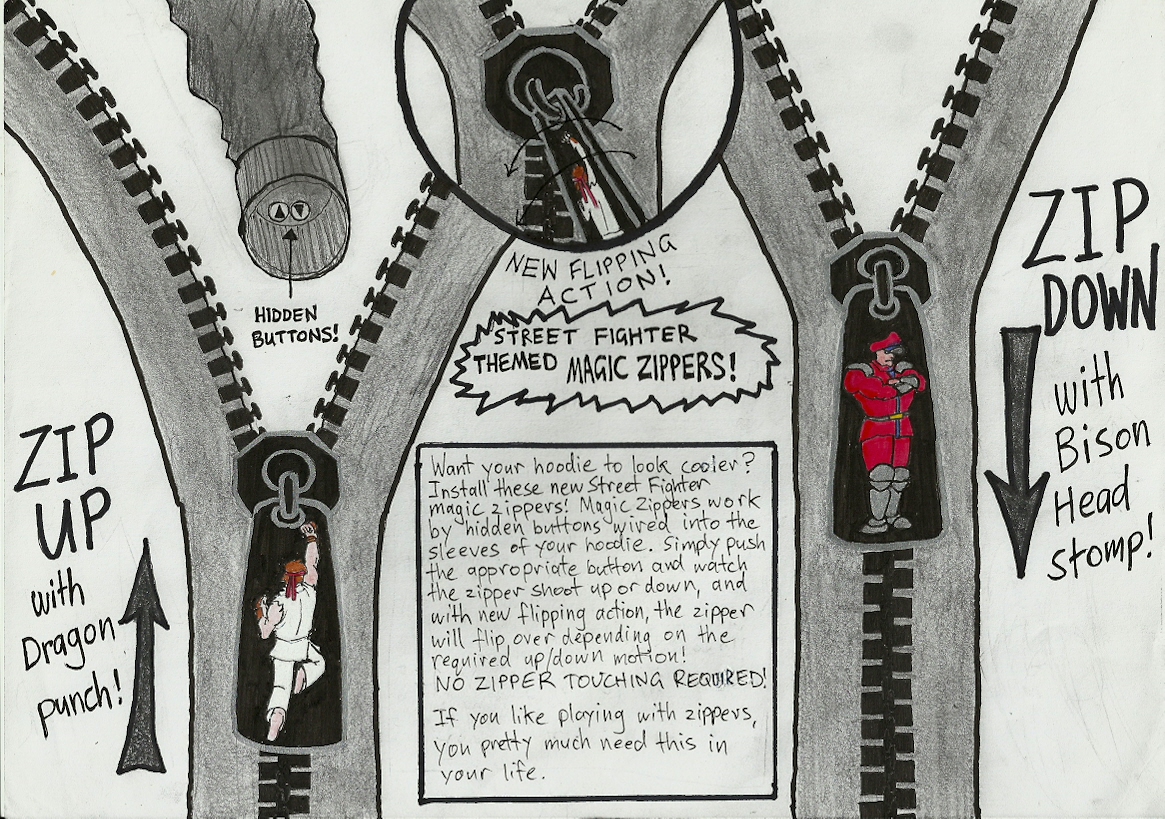 NEW FLIPPING
ACTION!
STREET FIGHTER
THEMED MAGIC ZIPPERS!
HIDDEN
BUTTONS!
ZIP
UP
with
Dragon
punch!
ZIP
DOWN
with
Bison
Head
stomp!
Want your hoodie to look cooler?
Install these new Street Fighter
magic zippers! Magic Zippers work
by hidden buttons wired into the
sleeves of your hoodie. Simply push
the appropriate button and watch
the zipper shoot up or down, and
with new flipping action, the zipper
will flip over depending on the
required up/down motion!
NO ZIPPER TOUCHING REQUIRED!
If you like playing with zippers,
you pretty much need this in
your life.